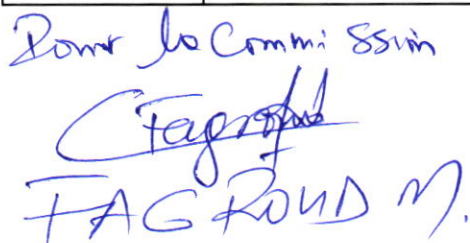 Pour la Commission
Fagroud
FAGROUD M.